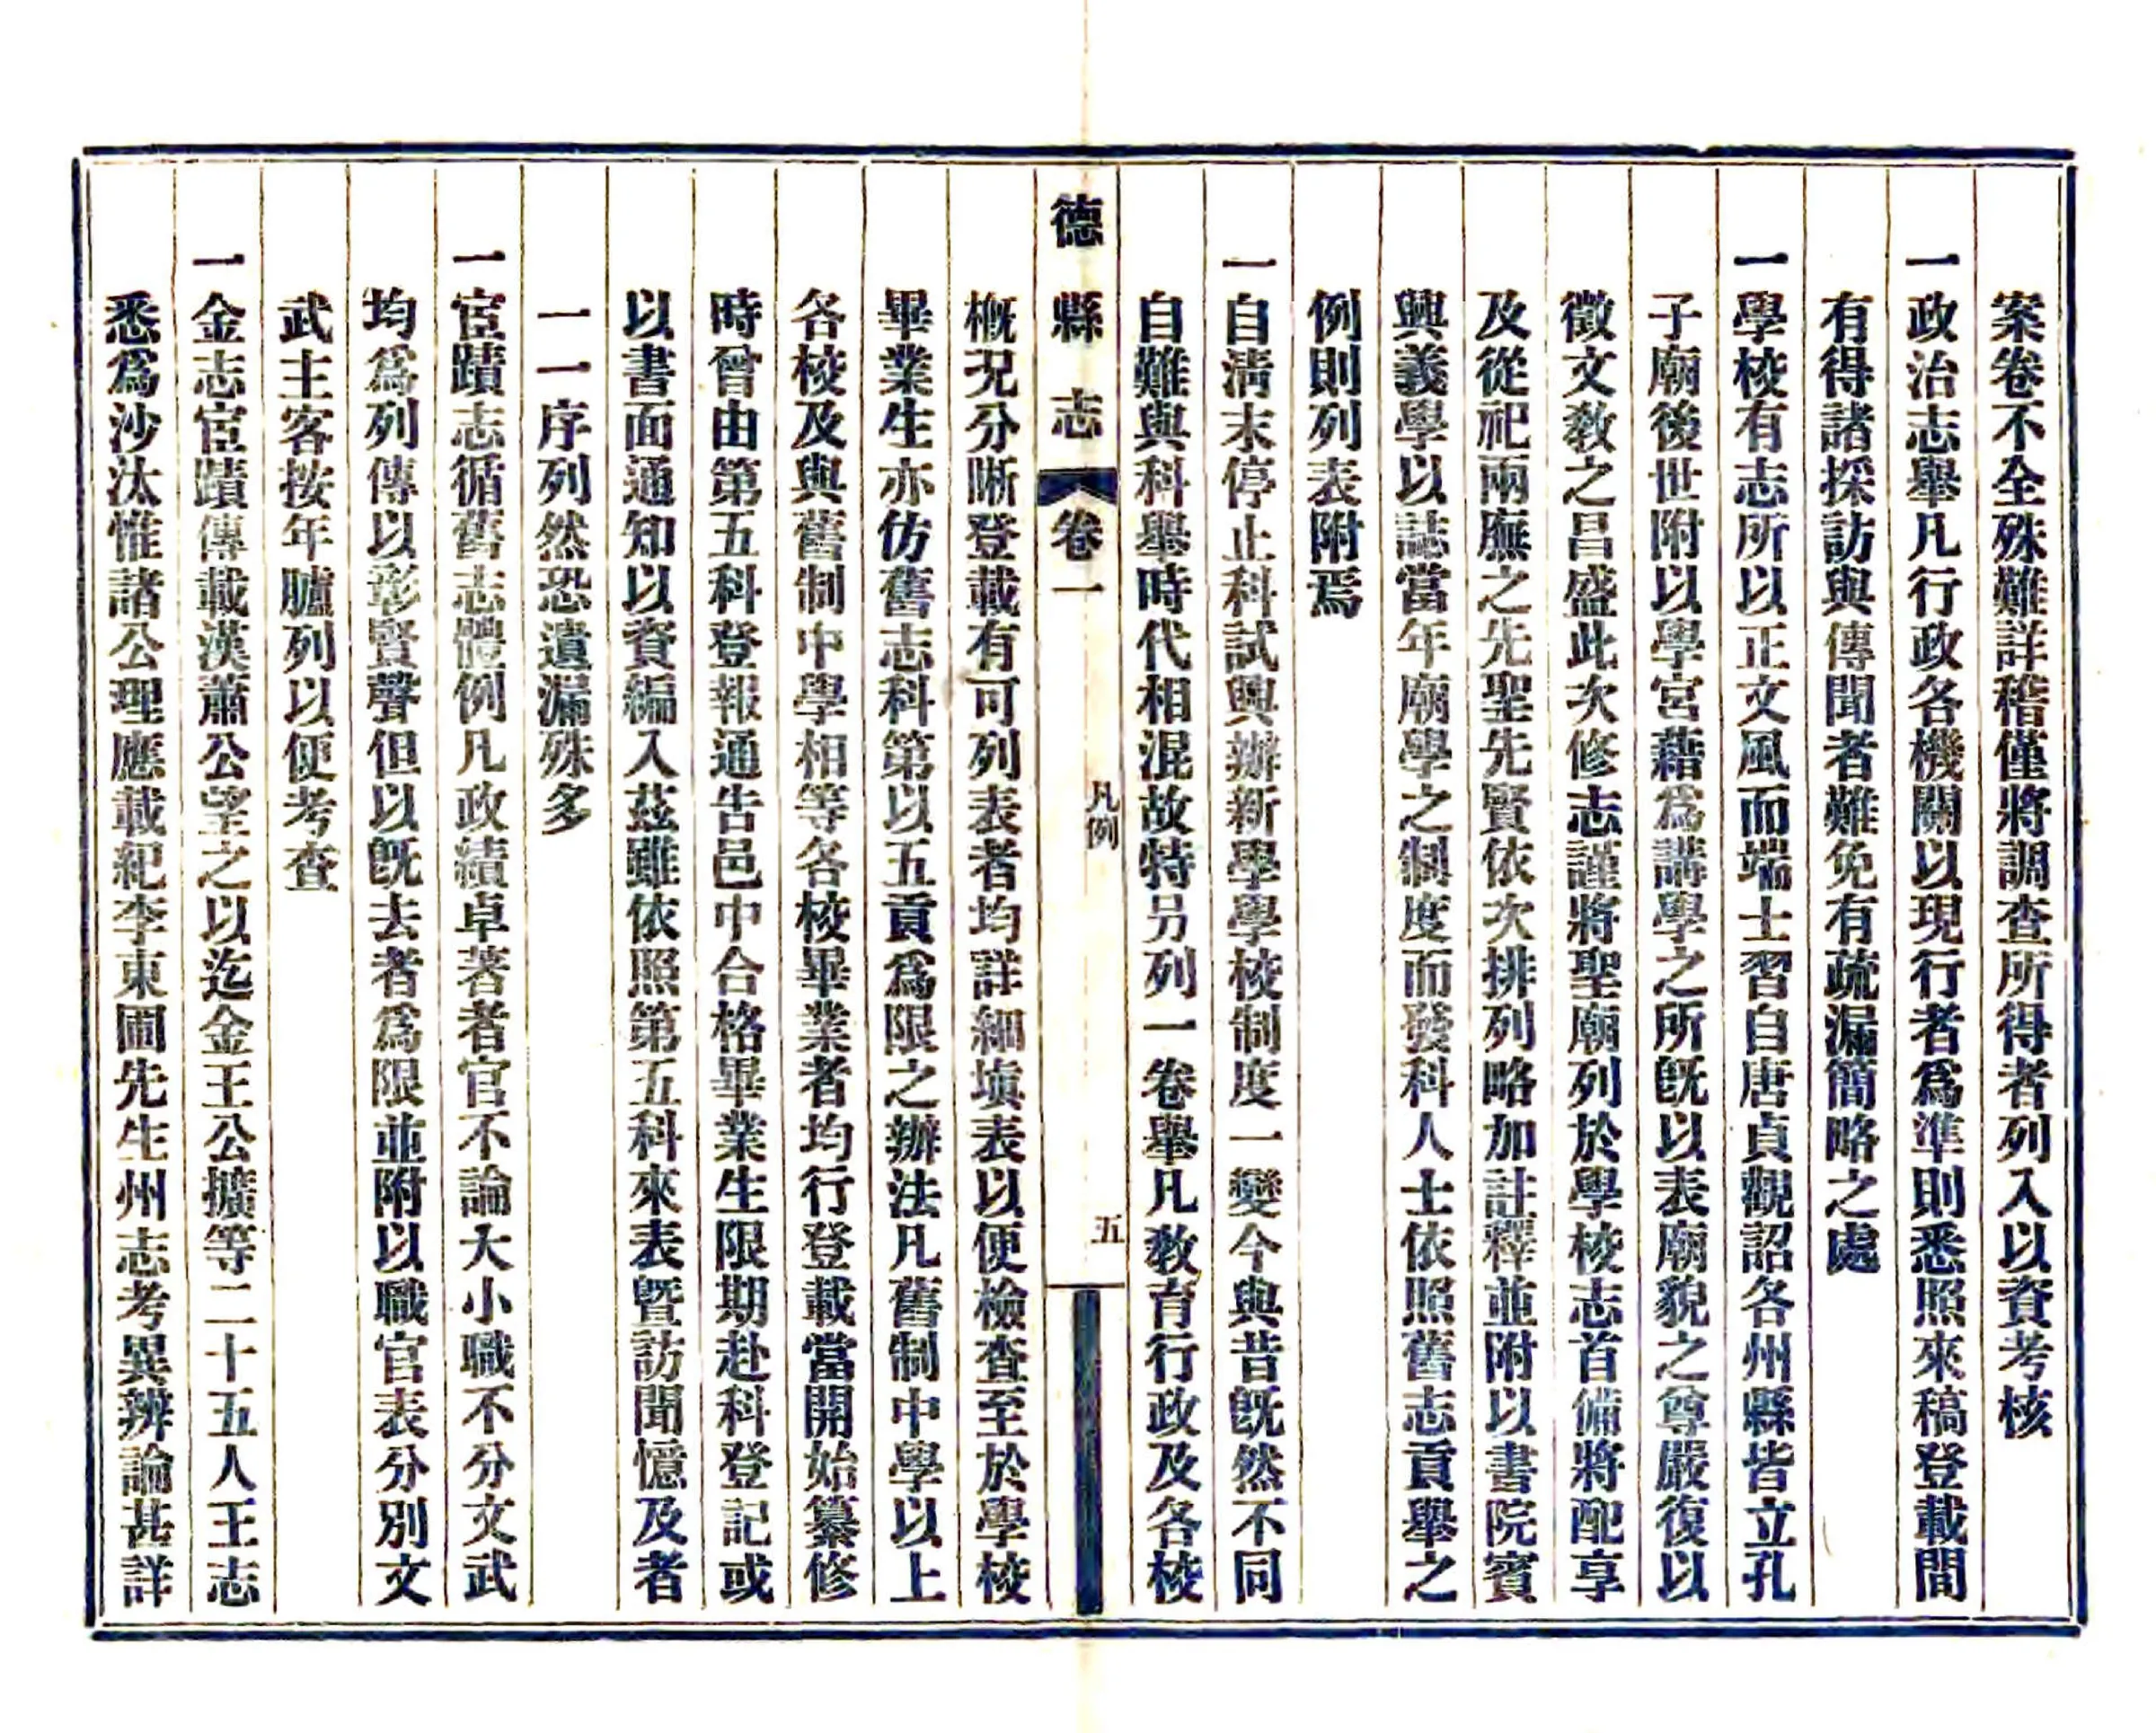 案卷不全殊難詳稽僅將調查所得者列入以資考核
一政治志舉凡行政各機關以現行者爲準則悉照來稿登載間
有得諸採訪與傳聞者難免有疏漏簡略之處
一學校有志所以正文風而端士習自唐貞觀詔各州縣皆立孔
子廟後世附以學宮藉爲講學之所旣以表廟貌之尊嚴復以
徵文教之昌盛此次修志謹將聖廟列於學校志首備將配享
及從祀兩廡之先聖先賢依次排列略加註釋並附以書院賓
興義學以誌當年廟學之制度而發科人士依照舊志貢舉之
例則列表附焉
一自清末停止科試興辦新學學校制度一變今與昔旣然不同
自難與科舉時代相混故特另列一卷舉凡教育行政及各校
德縣志 卷一 凡例 五
概況分晰登載有可列表者均詳細塡表以便檢查至於學校
畢業生亦仿舊志科第以五貢爲限之辦法凡舊制中學以上
各校及與舊制中學相等各校畢業者均行登載當開始纂修
時曾由第五科登報通告邑中合格畢業生限期赴科登記或
以書面通知以資編入茲雖依照第五科來表曁訪聞憶及者
一一序列然恐遺漏殊多
一宦蹟志循舊志體例凡政績卓著者官不論大小職不分文武
均爲列傳以彰賢聲但以旣去者爲限並附以職官表分別文
武主客按年臚列以便考查
一金志宦蹟傳載漢蕭公望之以迄金王公擴等二十五人王志
悉爲沙汰惟諸公理應載紀李東圃先生州志考異辨論甚詳